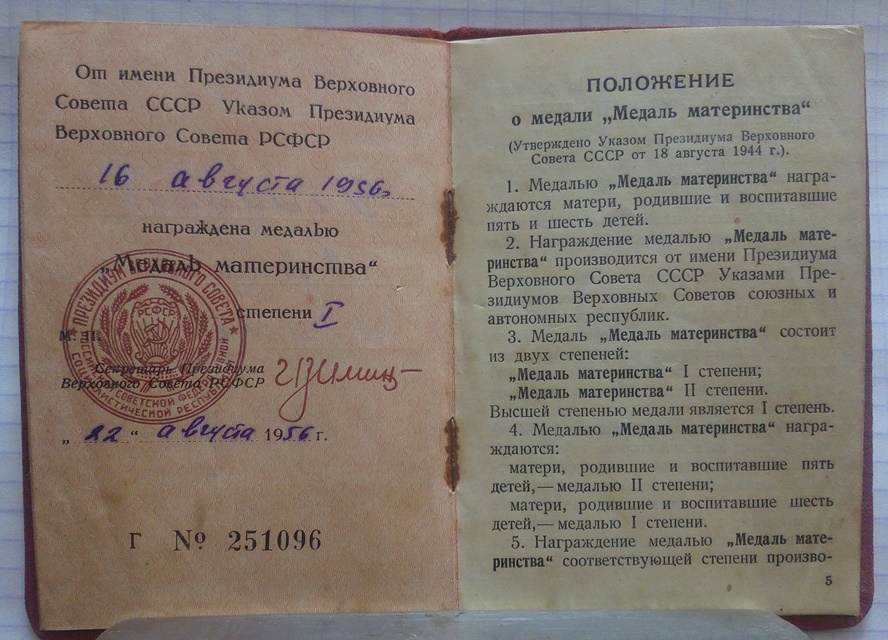 От имени Президиума Верховного
Совета СССР Указом Президиума
Верховного Совета РСФСР
16 августа 1956
награждена медалью
„Медаль материнства“
степени I
М. П.
Секретарь Президиума
Верховного Совета РСФСР
„22“ августа 1956 г.
Г № 251096
ПРЕЗИДИУМ ВЕРХОВНОГО СОВЕТА
РОССИЙСКОЙ СОВЕТСКОЙ ФЕДЕРАТИВНОЙ
СОЦИАЛИСТИЧЕСКОЙ РЕСПУБЛИКИ
РСФСР
ПОЛОЖЕНИЕ
о медали „Медаль материнства“
(Утверждено Указом Президиума Верховного
Совета СССР от 18 августа 1944 г.).
1. Медалью „Медаль материнства“ награ-
ждаются матери, родившие и воспитавшие
пять и шесть детей.
2. Награждение медалью „Медаль мате-
ринства“ производится от имени Президиума
Верховного Совета СССР Указами Пре-
зидиумов Верховных Советов союзных и
автономных республик.
3. Медаль „Медаль материнства“ состоит
из двух степеней:
„Медаль материнства“ I степени;
„Медаль материнства“ II степени.
Высшей степенью медали является I степень.
4. Медалью „Медаль материнства“ награ-
ждаются:
матери, родившие и воспитавшие пять
детей,— медалью II степени;
матери, родившие и воспитавшие шесть
детей,— медалью I степени.
5. Награждение медалью „Медаль мате-
ринства“ соответствующей степени произво-
5